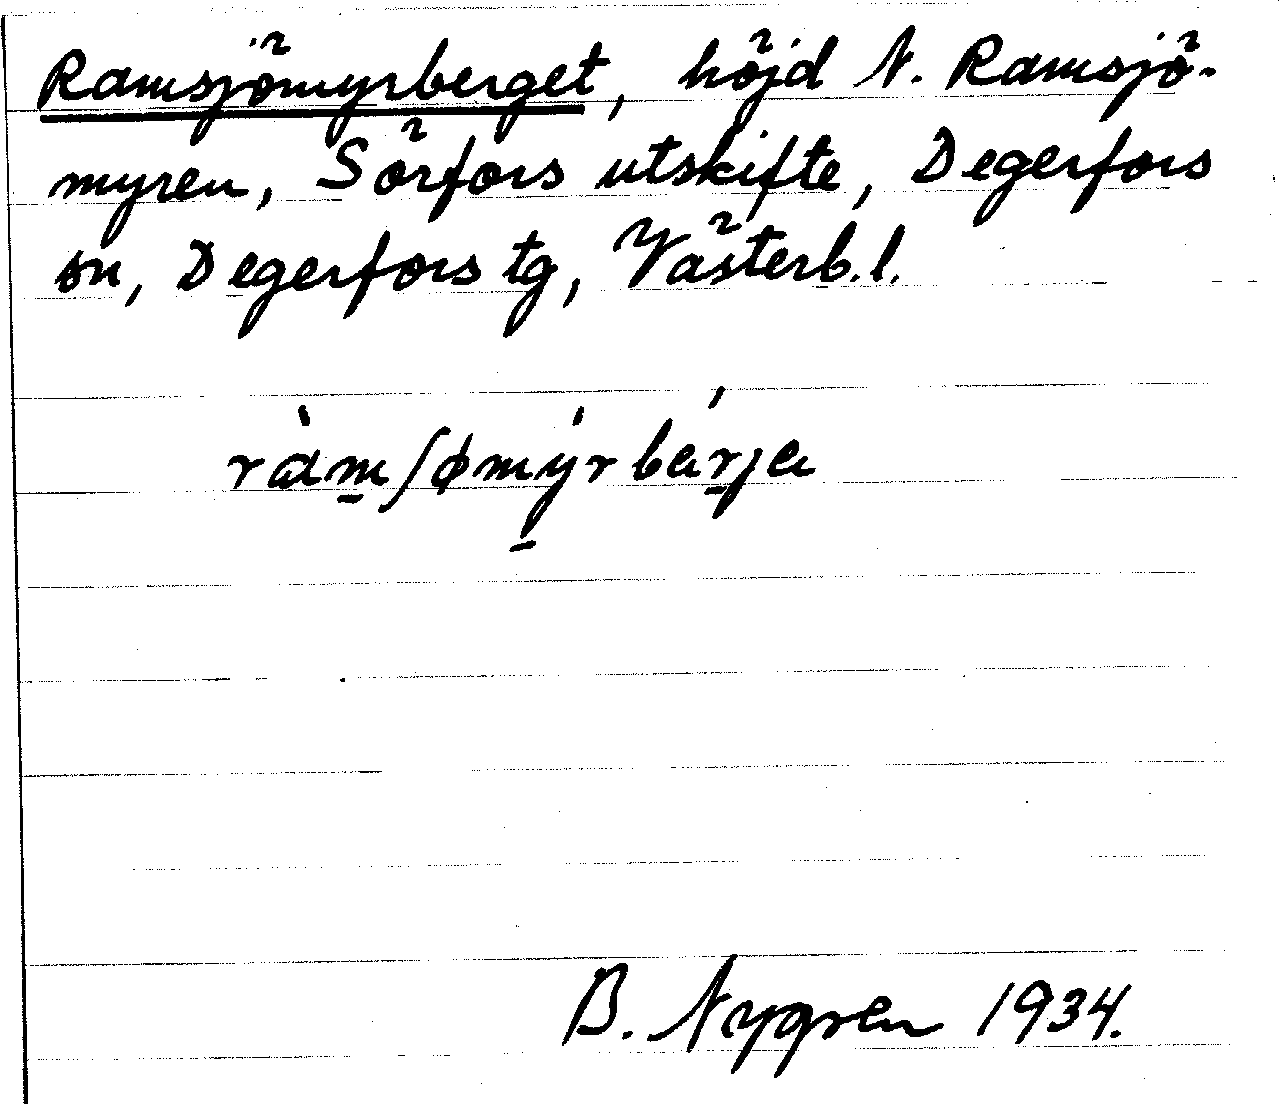 Ramsjömyrberget, höjd N. Ramsjö-
myren, Sörfors utskifte, Degerfors
sn, Degerfors tg, Västerb.l.
ràm̲ʃømý̲rbár̲ja
B. Nygren 1934.